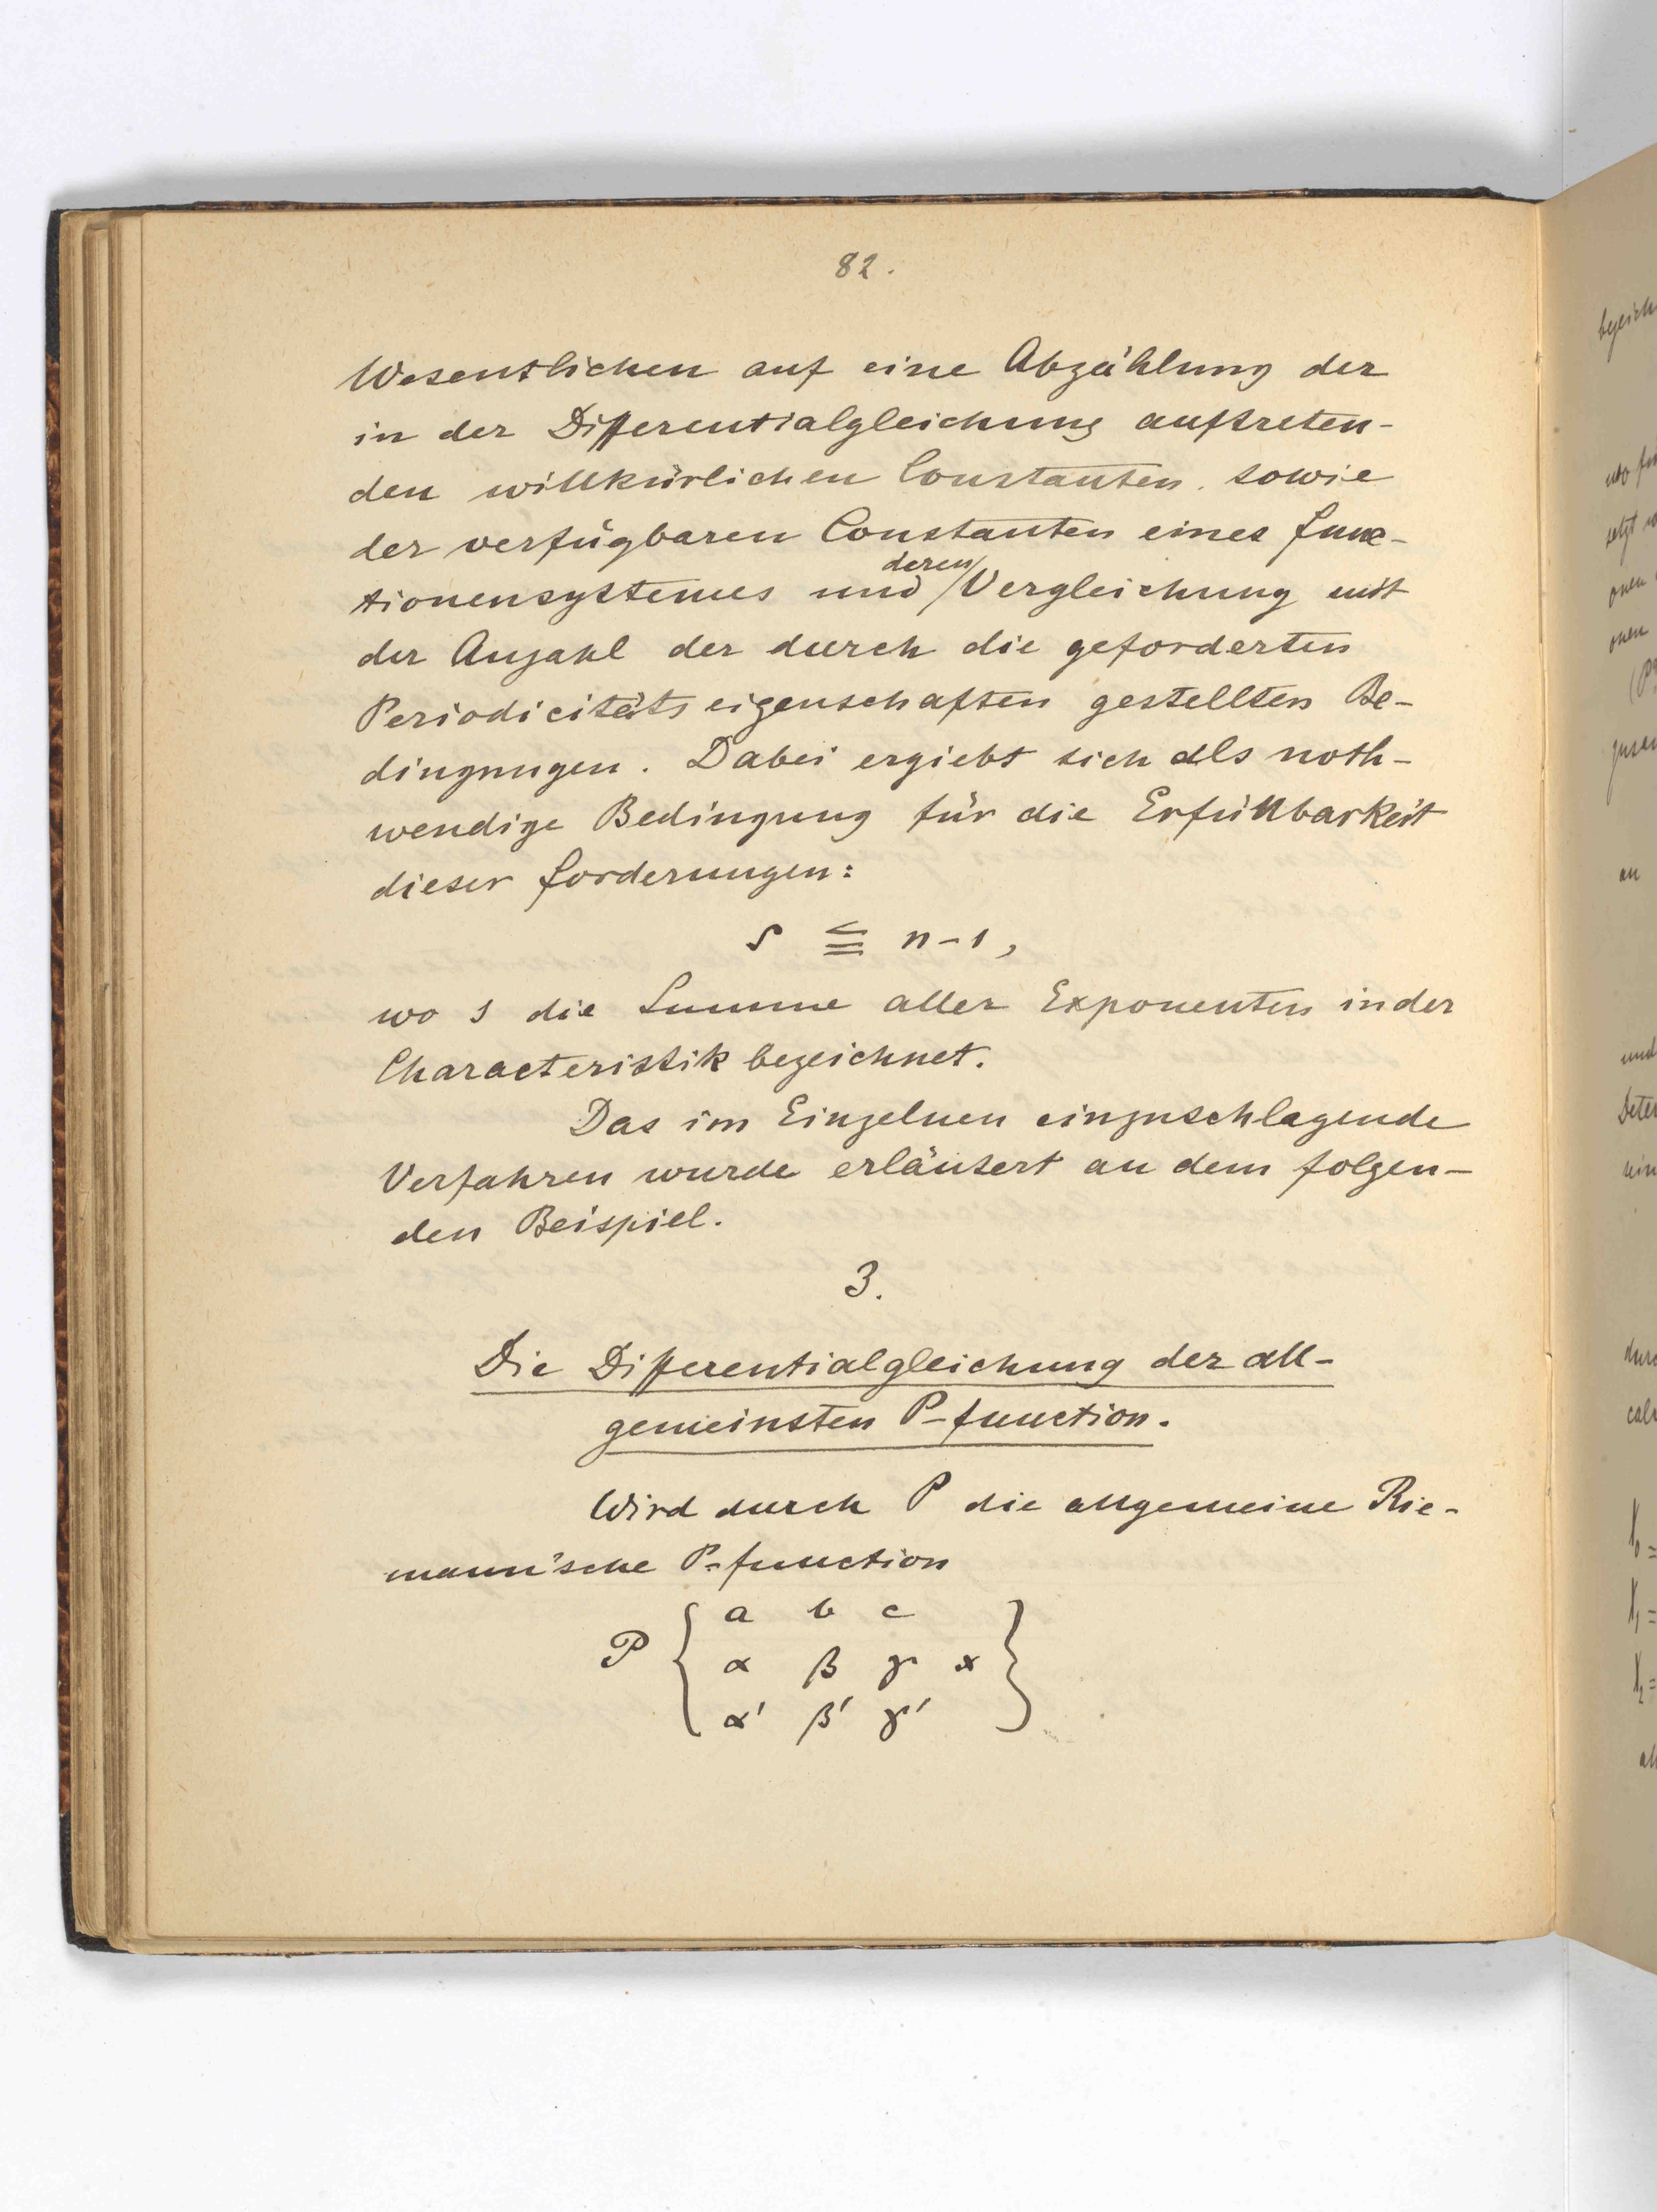 82.
Wesentlichen auf eine Abzählung der
in der Differentialgleichung auftreten-
den willkürlichen Constanten, sowie
der verfügbaren Constanten eines Func-
deren
tionensystemes und / Vergleichung mit
der Anzahl der durch die geforderten
Periodicitätseigenschaften gestellten Be-
dingungen. Dabei ergiebt sich als noth-
wendige Bedingung für die Erfüllbarkeit
dieser Forderungen:
s ≦ n-1,
wo s die Summe aller Exponenten in der
Characteristik bezeichnet.
Das im Einzelnen einzuschlagende
Verfahren wurde erläutert an dem folgen-
den Beispiel.
3.
Die Differentialgleichung der all-
gemeinsten P-function.
Wird durch P die allgemeine Rie-
mann'sche P-function
P { a b c
α β γ x
α' β' γ' }